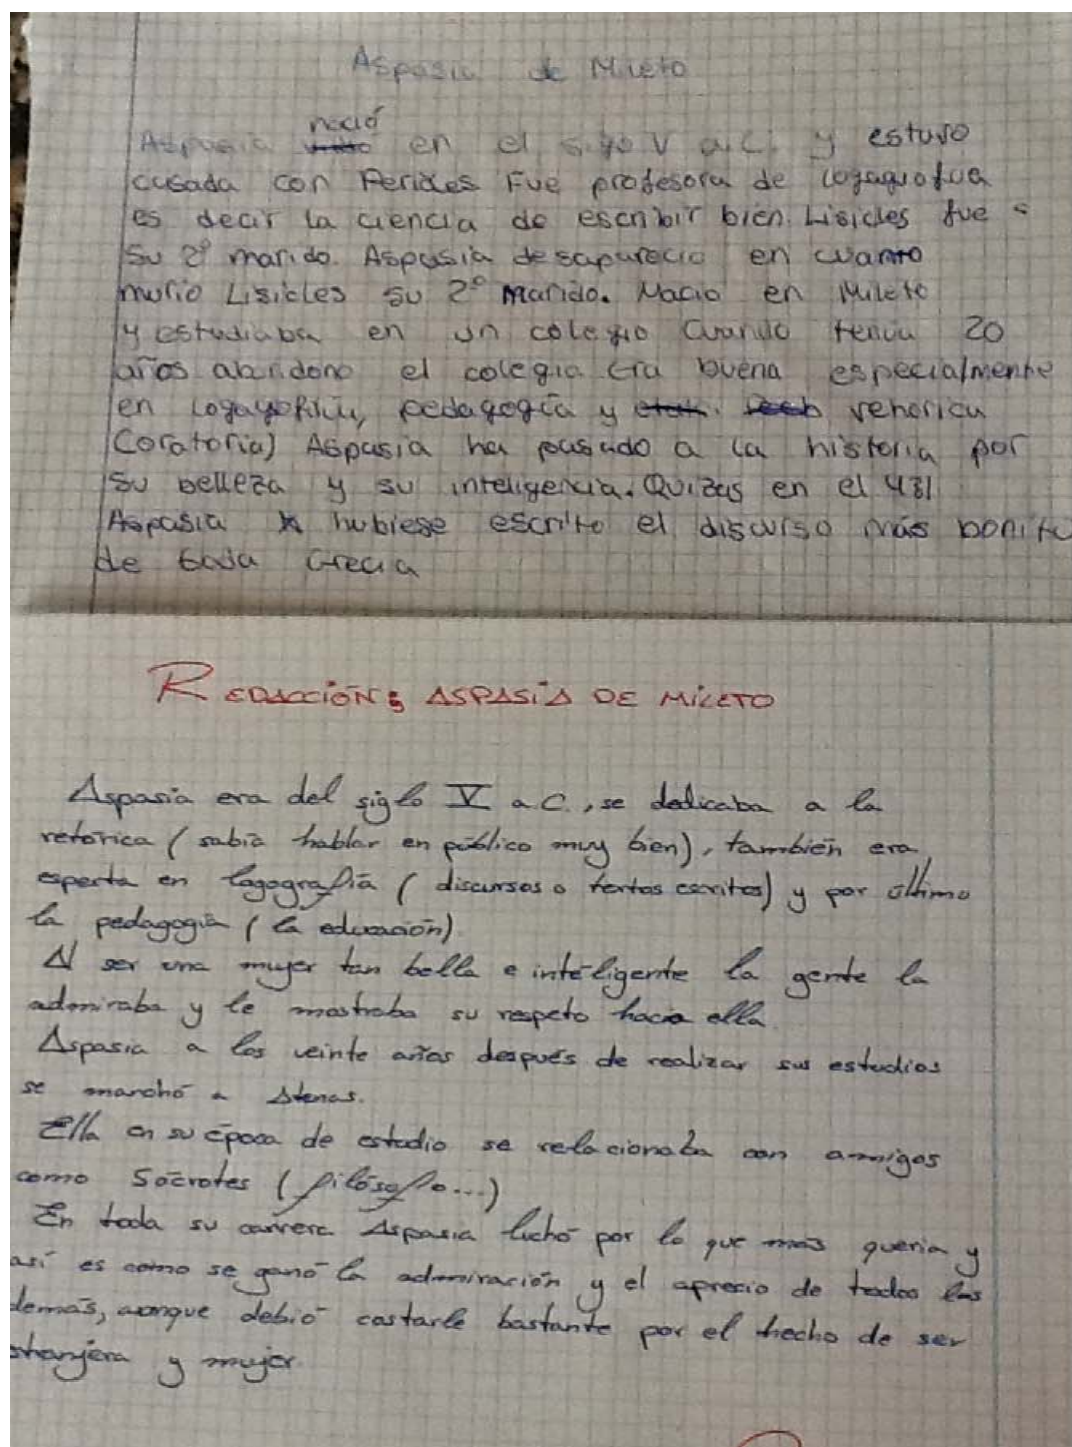 Aspasia de Mileto
nació
Aspasia en el siglo V a.C. y estuvo
casada con Pericles Fue profesora de
es decir la ciencia de escribir bien. Lisicles fue
su 2º marido. Aspasia desaparecio en cuanto
murio Lisicles su 2º marido. Nacio en Mileto
y estudiaba en un colegio Cuando tenia 20
años abandono el colegio Era buena especialmente
en pedagogía y rehorica
(oratoria) Aspasia ha pasado a la historia por
su belleza y su inteligencia. Quizas en el 431
Aspasia hubiese escrito el discurso más bonito
de toda Grecia
REDACCIÓN: ASPASIA DE MILETO
Aspasia era del siglo V a.C., se dedicaba a la
retórica (sabía hablar en público muy bien), también era
esperta en logografía (discursos o textos escritos) y por último
la pedagogía (la educación).
Al ser una mujer tan bella e inteligente la gente la
admiraba y le mostraba su respeto hacia ella.
Aspasia a los veinte años después de realizar sus estudios
se marchó a Atenas.
Ella en su época de estudio se relacionaba con amigos
como Sócrates (filósofo...)
En toda su carrera Aspasia luchó por lo que más quería y
así es como se ganó la admiración y el aprecio de todos los
demás, aunque debió costarle bastante por el hecho de ser
stranjera y mujer.